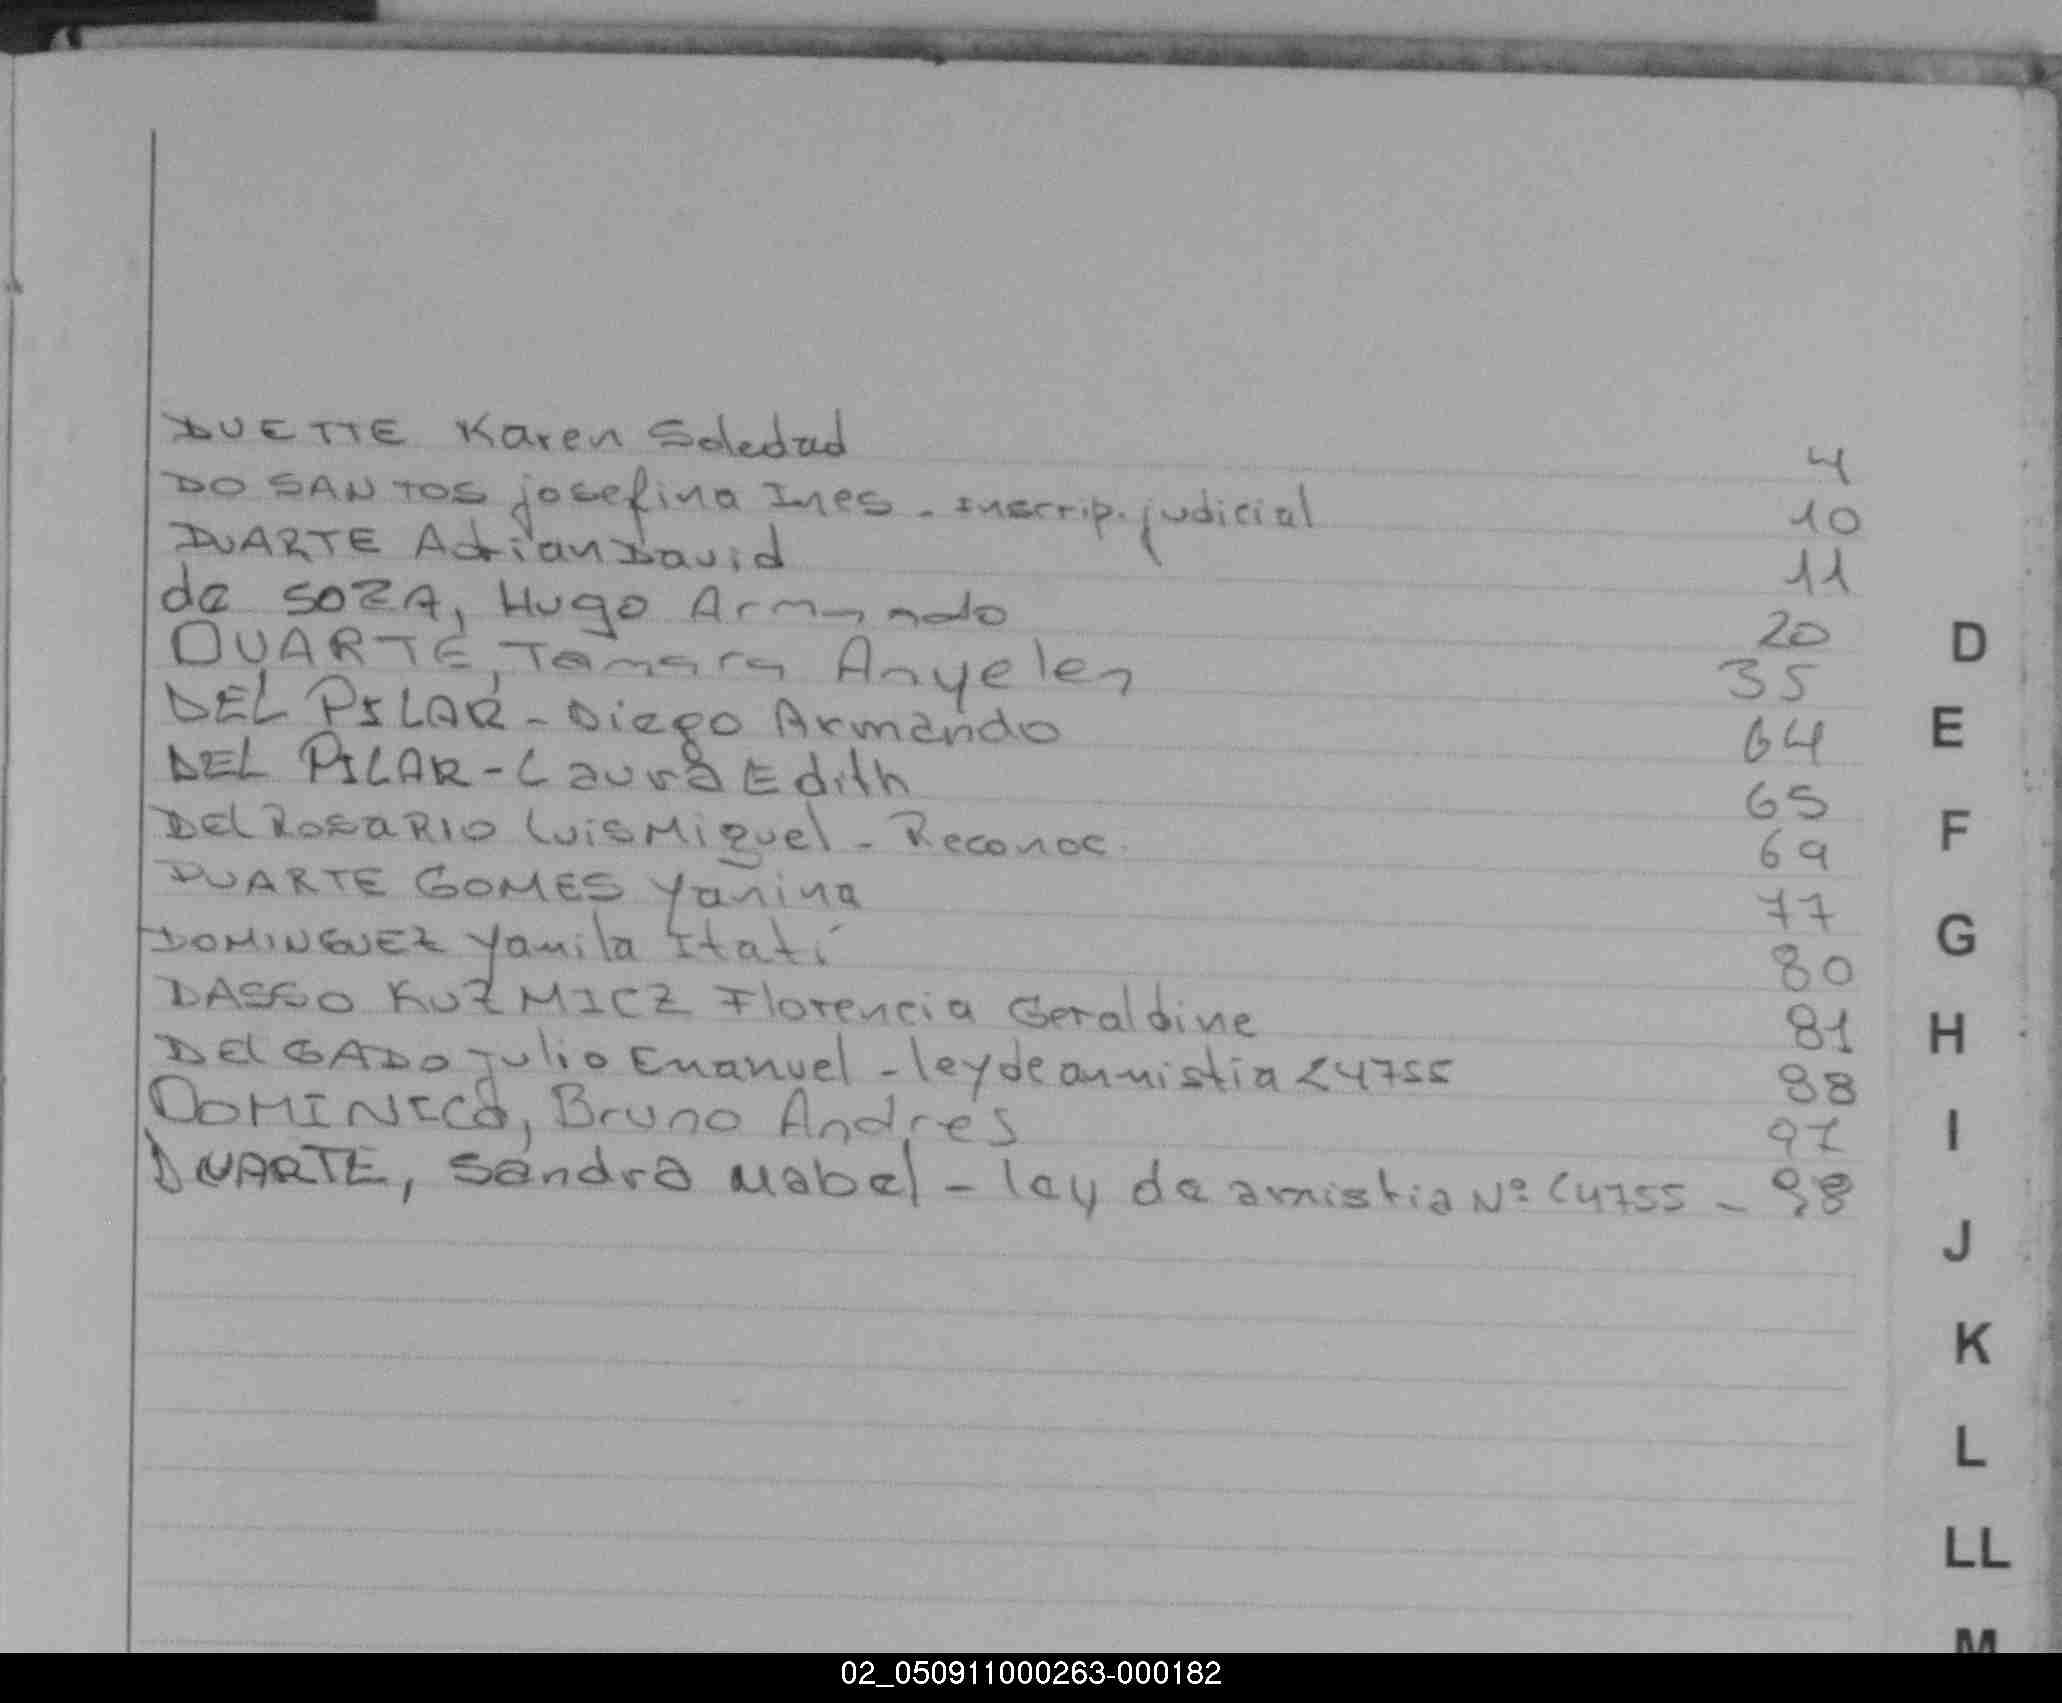 DUETTE Karen Soledad 4
DO SANTOS josefina Ines - Inscrip. judicial 10
DUARTE Adrian David 11
de SOZA, Hugo Armando 20
DUARTE, Tamara Anyelen 35
DEL PILAR - Diego Armando 64
DEL PILAR - Laura Edith 65
DEl ROSARIO Luis Miguel - Reconoc. 69
DUARTE GOMES Yanina 77
DOMINGUEZ Yamila Itatí 80
DASSO KUZMICZ Florencia Geraldine 81
DELGADO Julio Emanuel - ley de amnistia 24755 88
DOMINICO, Bruno Andres 97
DUARTE, Sandra Mabel - ley de amistia Nº 24755 - 98
D
E
F
G
H
I
J
K
L
LL
M
02_050911000263-000182